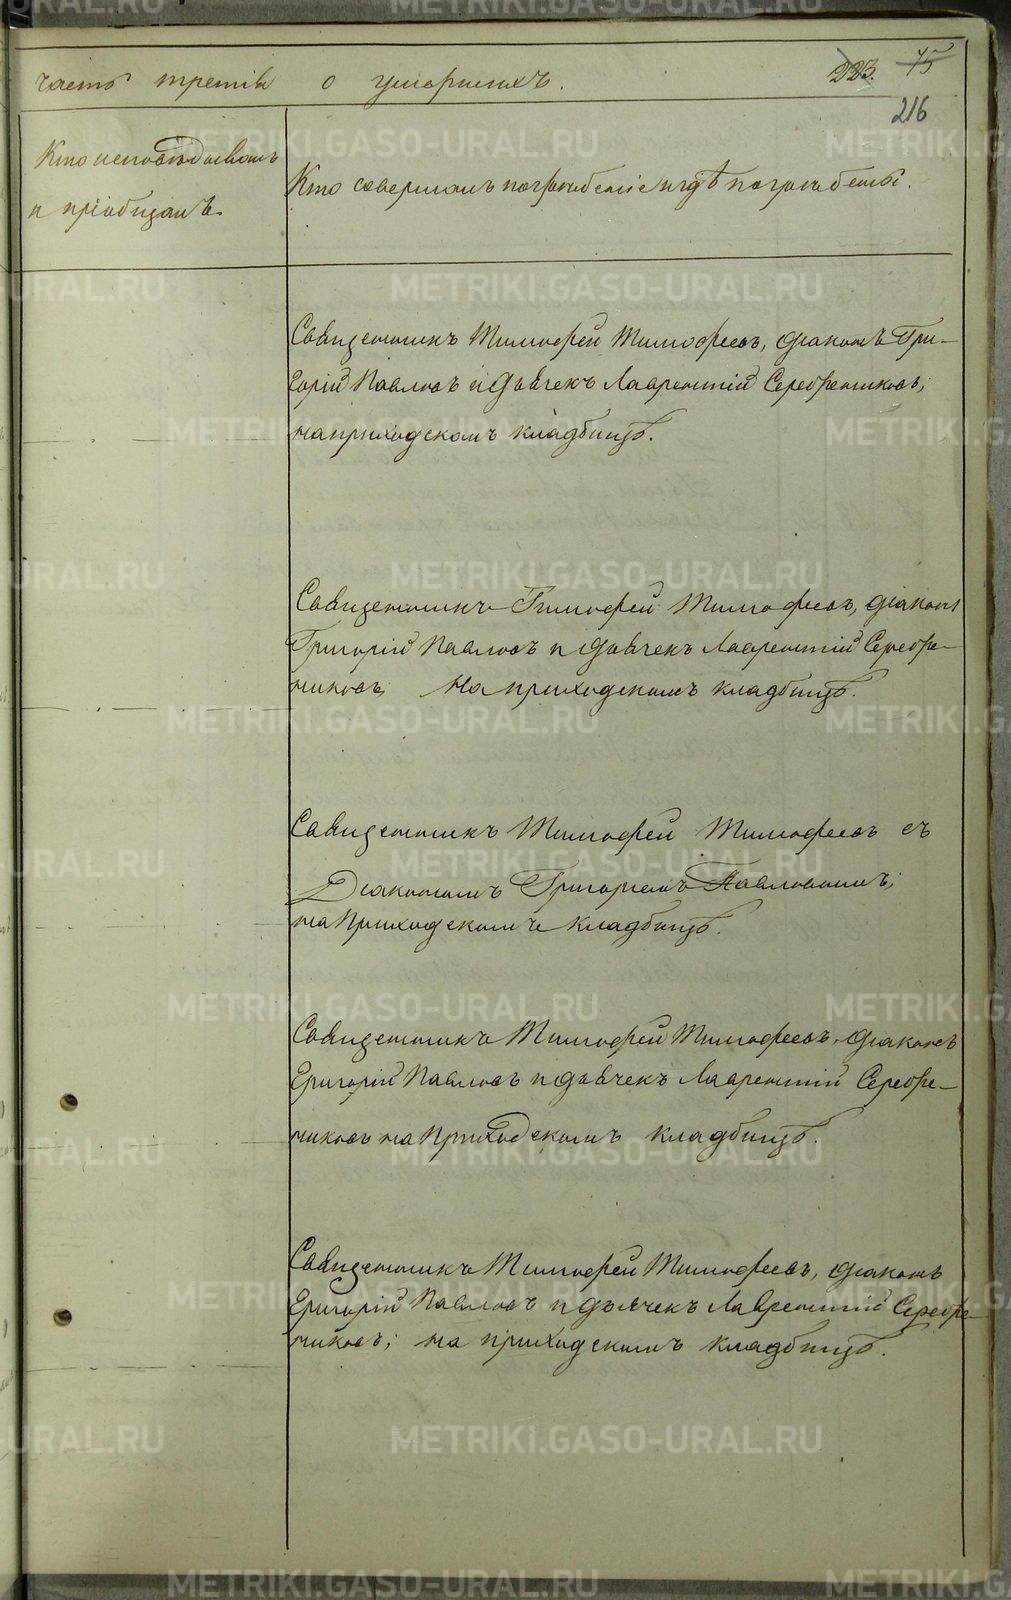 часть третія о умершихъ.
223. 75
216
Кто исповѣдывалъ
и пріобщалъ.
Кто совершалъ погребеніе и гдѣ погребены.
Священникъ Тимофей Тимофеевъ, діаконъ Гри-
горій Павловъ и дьячекъ Лаврентій Серебренниковъ;
на приходскомъ кладбищѣ.
Священникъ Тимофей Тимофеевъ, діаконъ
Григорій Павловъ и дьячекъ Лаврентій Серебре-
никовъ, на приходскомъ кладбищѣ.
Священникъ Тимофей Тимофеевъ съ
Діакономъ Григоріемъ Павловымъ;
на Приходскомъ кладбищѣ.
Священникъ Тимофей Тимофеевъ, діаконъ
Григорій Павловъ и дьячекъ Лаврентій Серебре-
никовъ на Приходскомъ кладбищѣ.
Священникъ Тимофей Тимофеевъ, діаконъ
Григорій Павловъ и дьячекъ Лаврентій Серебре-
никовъ; на приходскомъ кладбищѣ.
METRIKI.GASO-URAL.RU